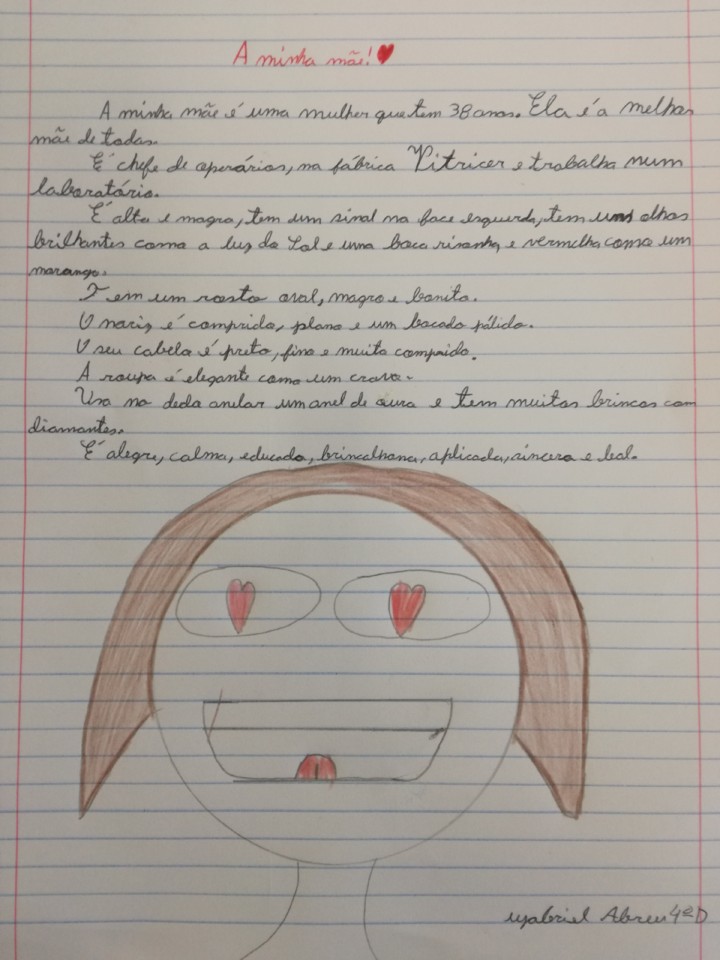 A minha mãe!
A minha mãe é uma mulher que tem 38 anos. Ela é a melhor
mãe de todas.
É chefe de operários, na fábrica Vitricer e trabalha num
laboratório.
É alta e magra, tem um sinal na face esquerda, tem uns olhos
brilhantes como a luz do Sol e uma boca risonha, e vermelha como um
morango.
Tem um rosto oval, magro e bonito.
O nariz é comprido, plano e um bocado pálido.
O seu cabelo é preto, fino e muito comprido.
A roupa é elegante como um cravo.
Usa no dedo anelar um anel de ouro e tem muitos brincos com
diamantes.
É alegre, calma, educada, brincalhona, aplicada, sincera e leal.
Gabriel Abreu 4ºD